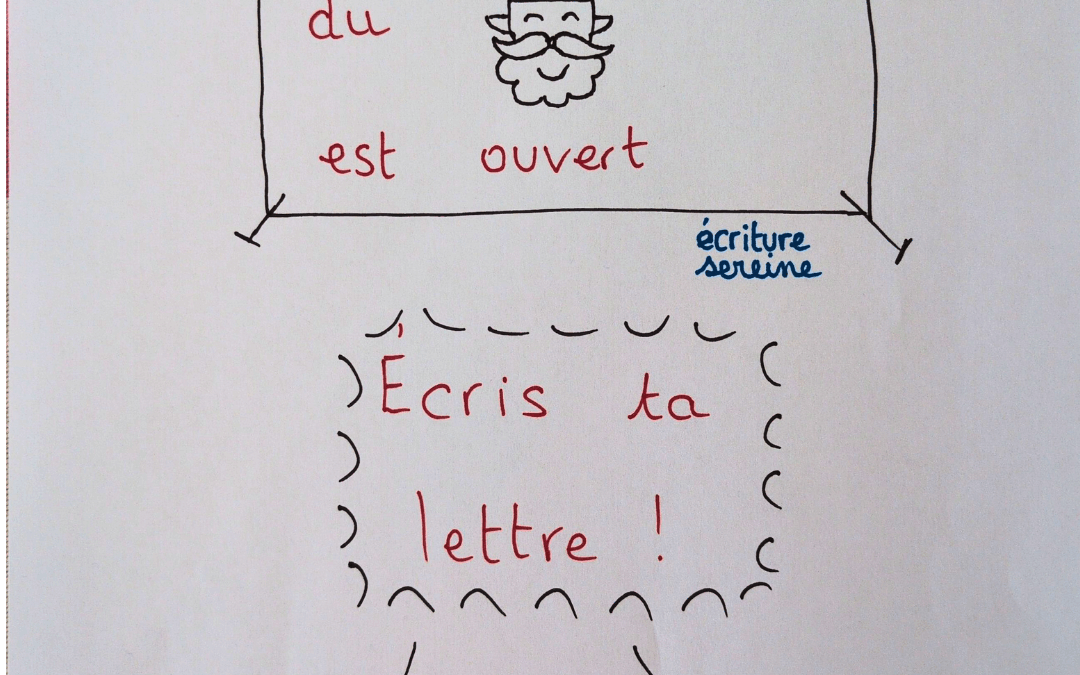 du
est ouvert
écriture
sereine
Écris ta
lettre !